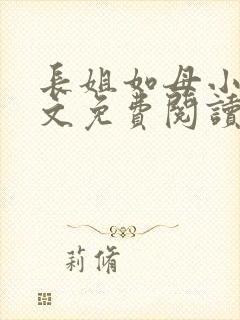 長姐如母小
文免費閱讀
莉脩